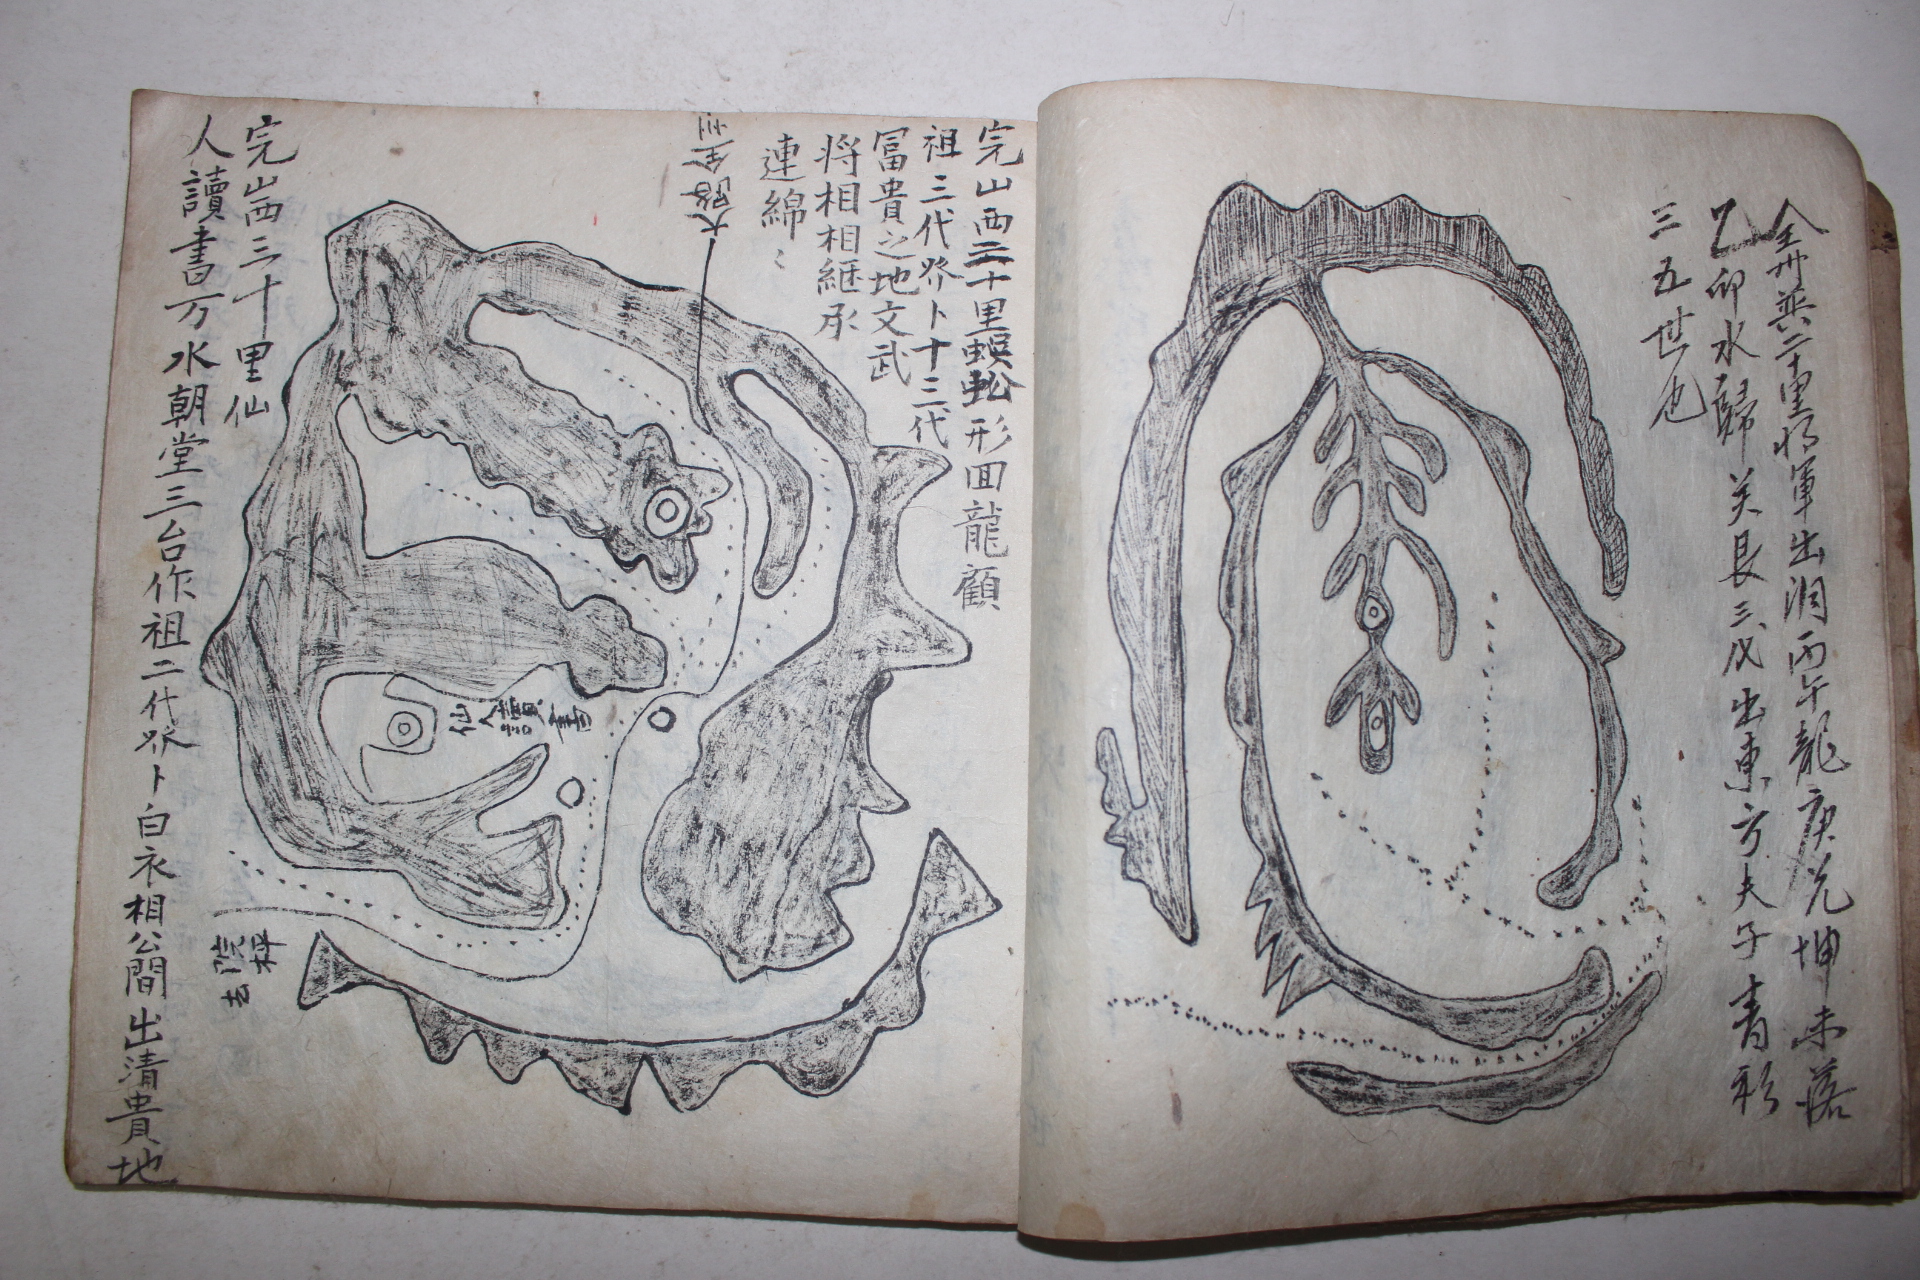 全州英二十里將軍出洞丙午龍庚兌坤未落
乙卯水歸 艮三戊出東方夫子青衫
三五世也
完山西二十里蜈蚣形回龍顧
祖三代 卜十三代
冨貴之地文武
将相相継承
連綿〻
大路全州
完山西三十里仙
人讀書万水朝堂三台作祖二代 卜白衣相公間出清貴地
仙人讀書
院枰
去